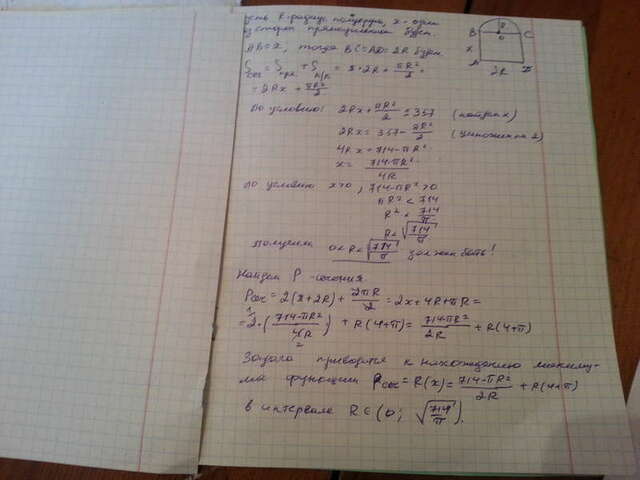 R-радиус полукруга, x-одна
из сторон прямоугольника будет.
AB=x, тогда BC=AD=2R будет.
R
B C
O
x
A D
2R
Sсеч = Sпр + Sп/к = x·2R + πR²/2 =
= 2Rx + πR²/2
По условию: 2Rx + πR²/2 = 357
2Rx = 357 - πR²/2 (умножим на 2)
4Rx = 714 - πR²
x = 714-πR²/4R
По условию x>0, 714-πR²>0
πR² < 714
R² < 714/π
R < √714/π
Получим 0<R<√714/π должен быть!
Найдем P -сечения
Pсеч = 2(x+2R) + 2πR/2 = 2x+4R+πR =
= 2·(714-πR²/4R) + R(4+π) = 714-πR²/2R + R(4+π)
2
Задача приводится к нахождению
функции Pсеч = R(x) = 714-πR²/2R + R(4+π)
в интервале R∈(0; √714/π).